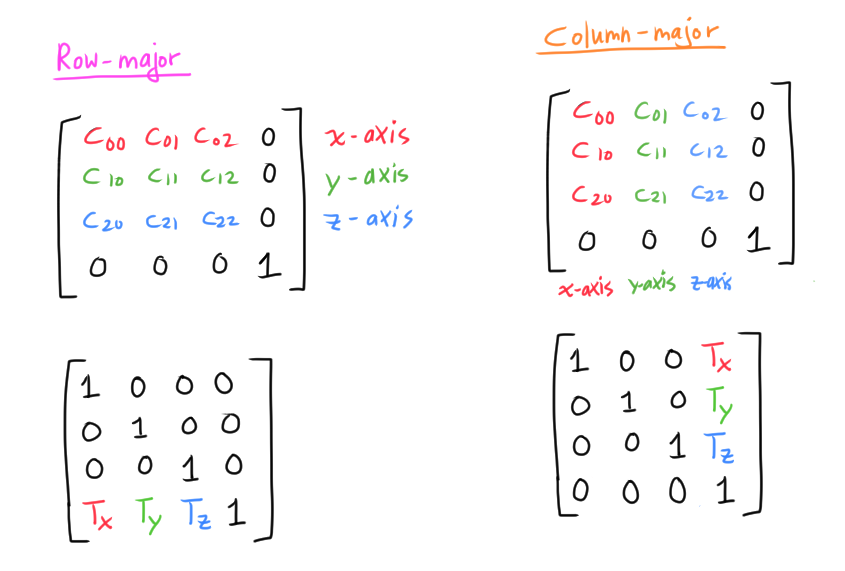 Row-major
C00 C01 C02 0 x-axis
C10 C11 C12 0 y-axis
C20 C21 C22 0 z-axis
0 0 0 1
1 0 0 0
0 1 0 0
0 0 1 0
Tx Ty Tz 1
Column-major
C00 C01 C02 0
C10 C11 C12 0
C20 C21 C22 0
0 0 0 1
x-axis y-axis z-axis
1 0 0 Tx
0 1 0 Ty
0 0 1 Tz
0 0 0 1